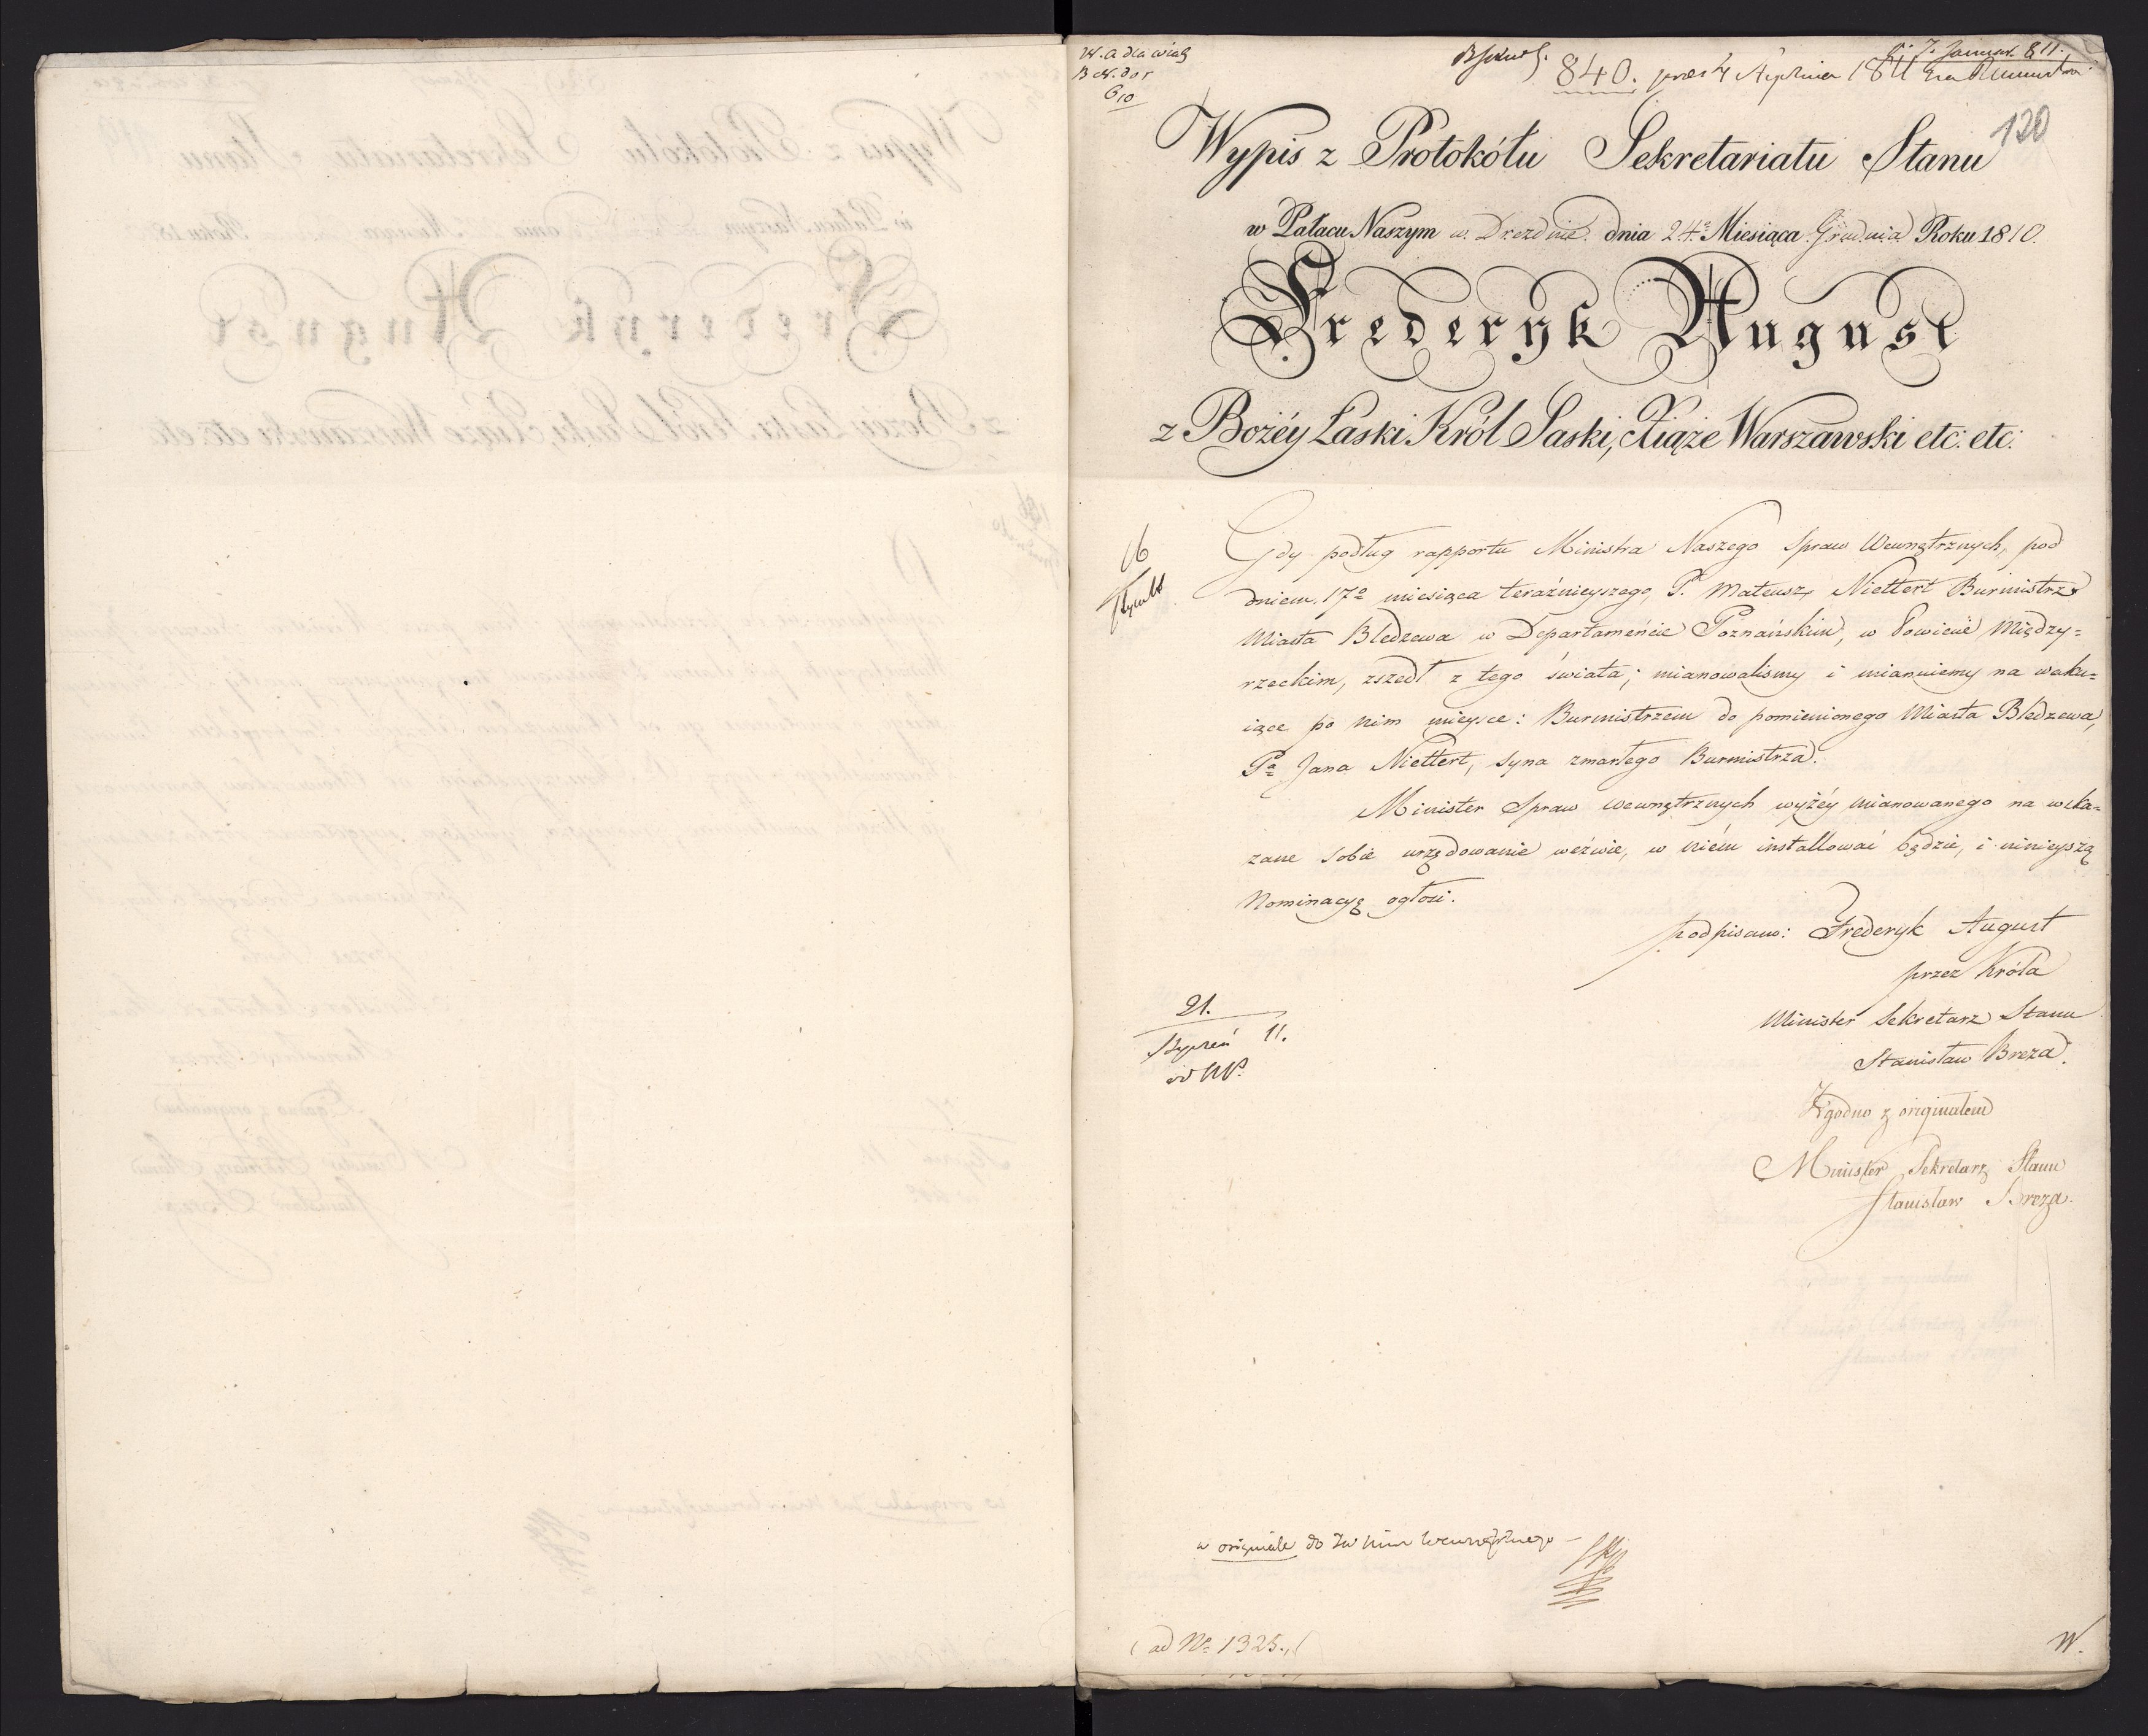 840.
120
Wypis z Protokółu Sekretariatu Stanu
w Pałacu Naszym w Dreznie dnia 24º Miesiąca Grudnia Roku 1810.
Frederyk August
z Bożéy Łaski Król Saski, Xiąże Warszawski etc: etc:
Gdy podług rapportu Ministra Naszego Spraw Wewnętrznych, pod
dniem 17º miesiąca teraźnieyszego, P. Mateusz Niettert Burmistrz
Miasta Bledzewa w Departamencie Poznańskim, w Powiecie Między=
rzeckim, zszedł z tego świata; mianowaliśmy i mianuiemy na waku=
iące po nim mieysce: Burmistrzem do pomienionego Miasta Bledzewa,
Pª Jana Niettert, syna zmarłego Burmistrza.
Minister Spraw wewnętrznych wyżéy mianowanego na wska=
zane sobie urzędowanie wezwie, w niém installować będzie, i ninieyszą
Nominacyę ogłosi.
podpisano: Frederyk August
przez Króla
Minister Sekretarz Stanu
Stanisław Breza.
21.
Styczeń 11.
Zgodno z originałem
Minister Sekretarz Stanu
Stanisław Breza.
w originale do
(ad Nº 1325.)
W.